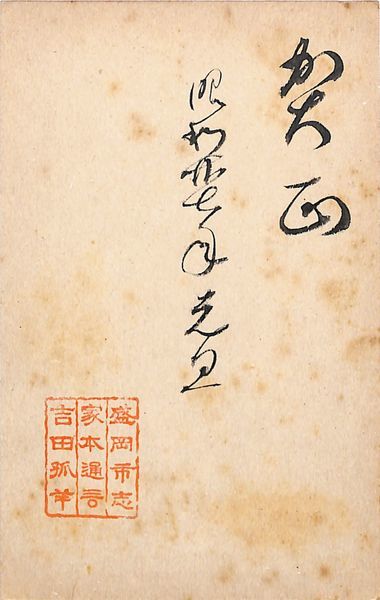 賀正
昭和廿七年 元旦
盛岡市志
家本通
吉田孤羊